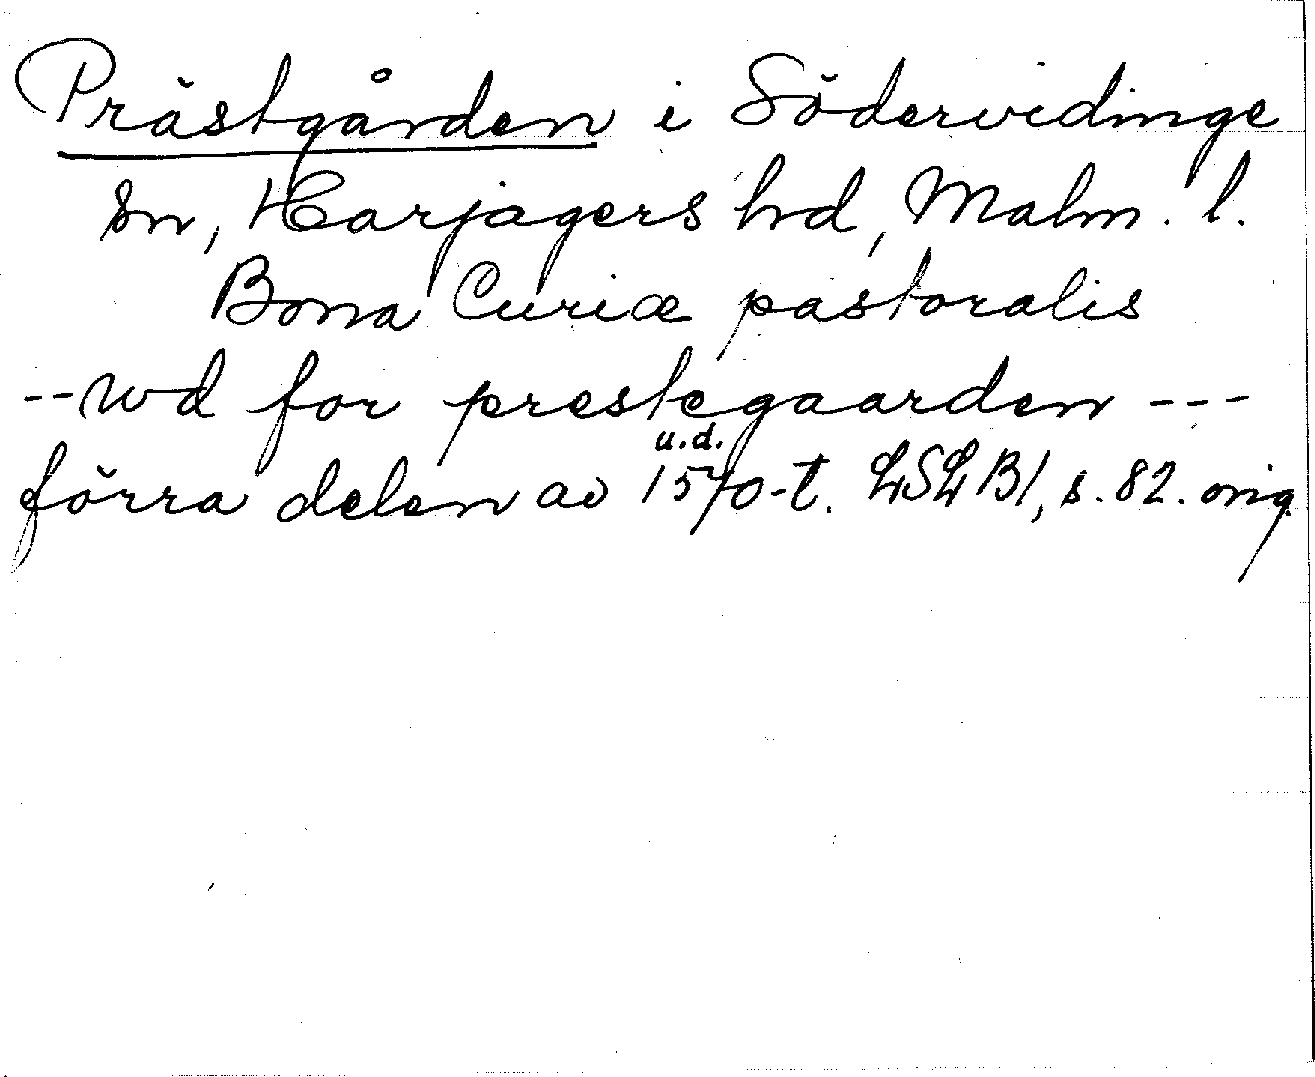 Prästgården i Södervidinge
sn, Harjagers hd, Malm. l.
Bona Curiæ pastoralis
-- wd for prestegaarden ---
u.d.
förra delen av 1570-t. LSLB1, s. 82. orig.